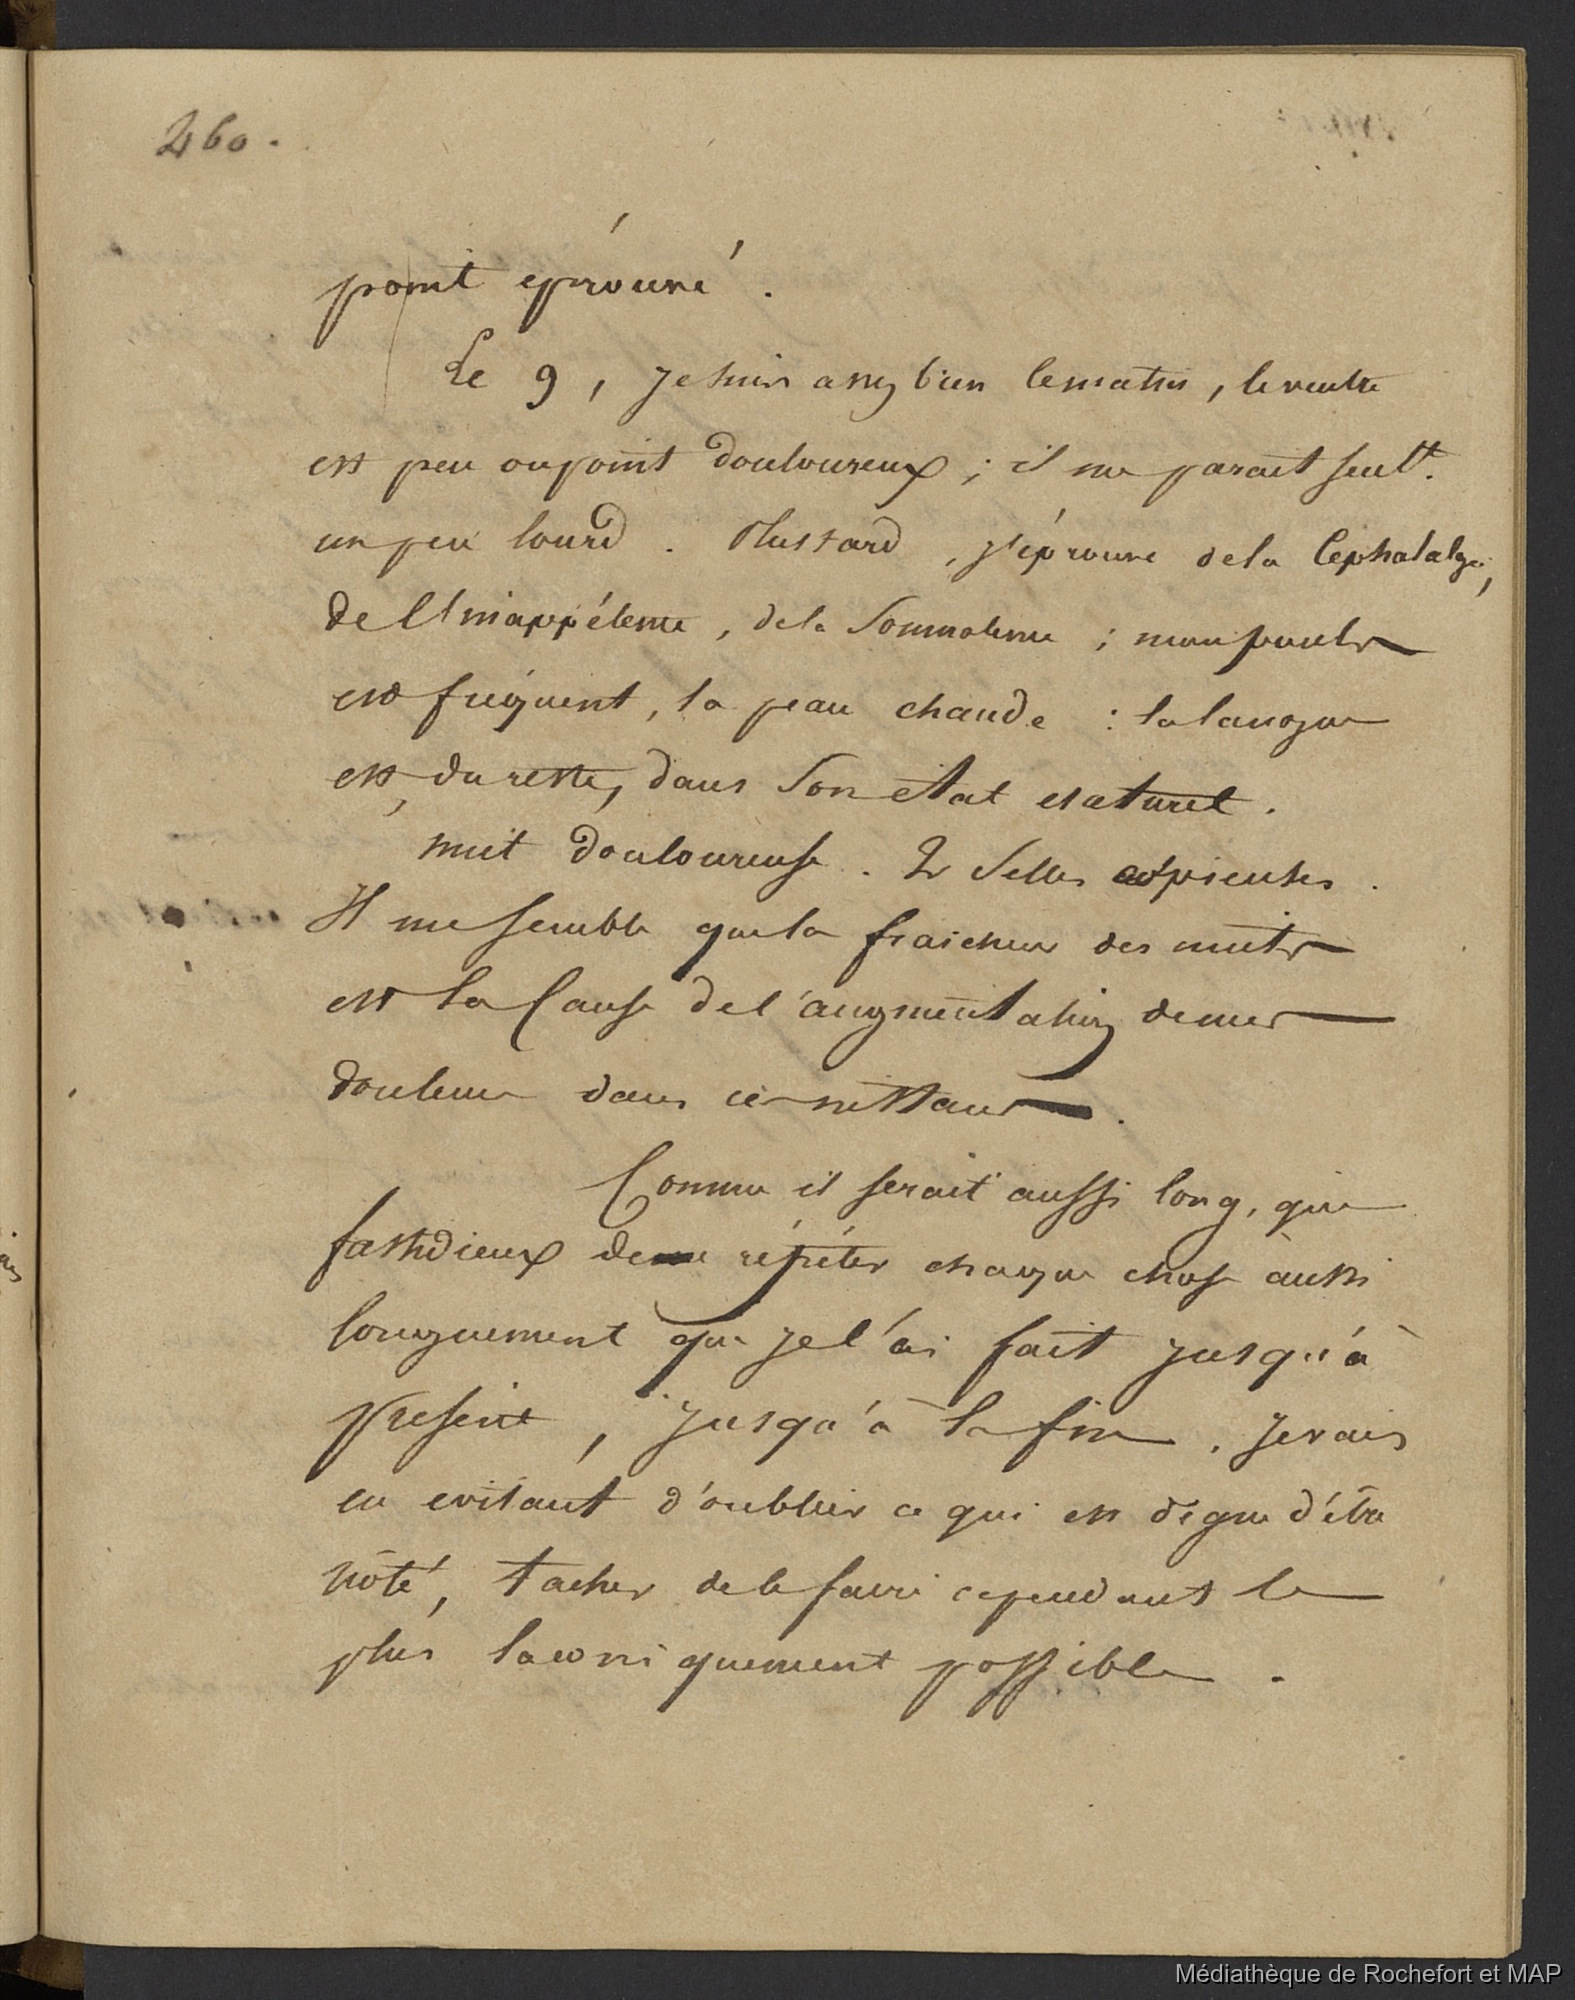 460.
point éprouvé.
Le 9, je suis assez bien le matin, le ventre
est peu ou point douloureux; il me parait seult.
un peu lourd. Plus tard, j'éprouve de la Cephalalgie,
de l'Inappétence, de la Somnolence; mon pouls
est fréquent, la peau chaude: la langue
est, du reste, dans son état naturel.
nuit douloureuse. 2 Selles
Il me semble que la fraicheur des nuits
est la Cause de l'augmentation de mes
douleurs dans ces instans.
Comme il serait aussi long, que
fastidieux de répéter chaque chose aussi
longuement que je l'ai fait jusqu'à
présent, jusqu'à la fin. Je vais
en evitant d'oublier ce qui est digne d'être
noté, tacher de le faire cependant le
plus laconiquement possible.
Médiathèque de Rochefort et MAP